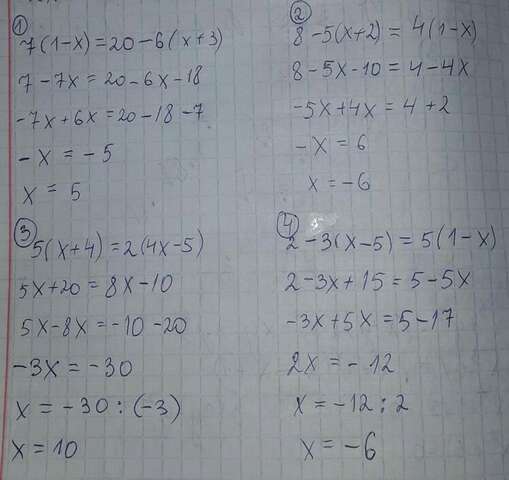 ①
7(1-x)=20-6(x+3)
7-7x=20-6x-18
-7x+6x=20-18-7
-x = -5
x = 5
②
8-5(x+2)=4(1-x)
8-5x-10=4-4x
-5x+4x=4+2
-x=6
x=-6
③
5(x+4)=2(4x-5)
5x+20=8x-10
5x-8x=-10-20
-3x=-30
x=-30:(-3)
x=10
④
2-3(x-5)=5(1-x)
2-3x+15=5-5x
-3x+5x=5-17
2x=-12
x=-12:2
x=-6